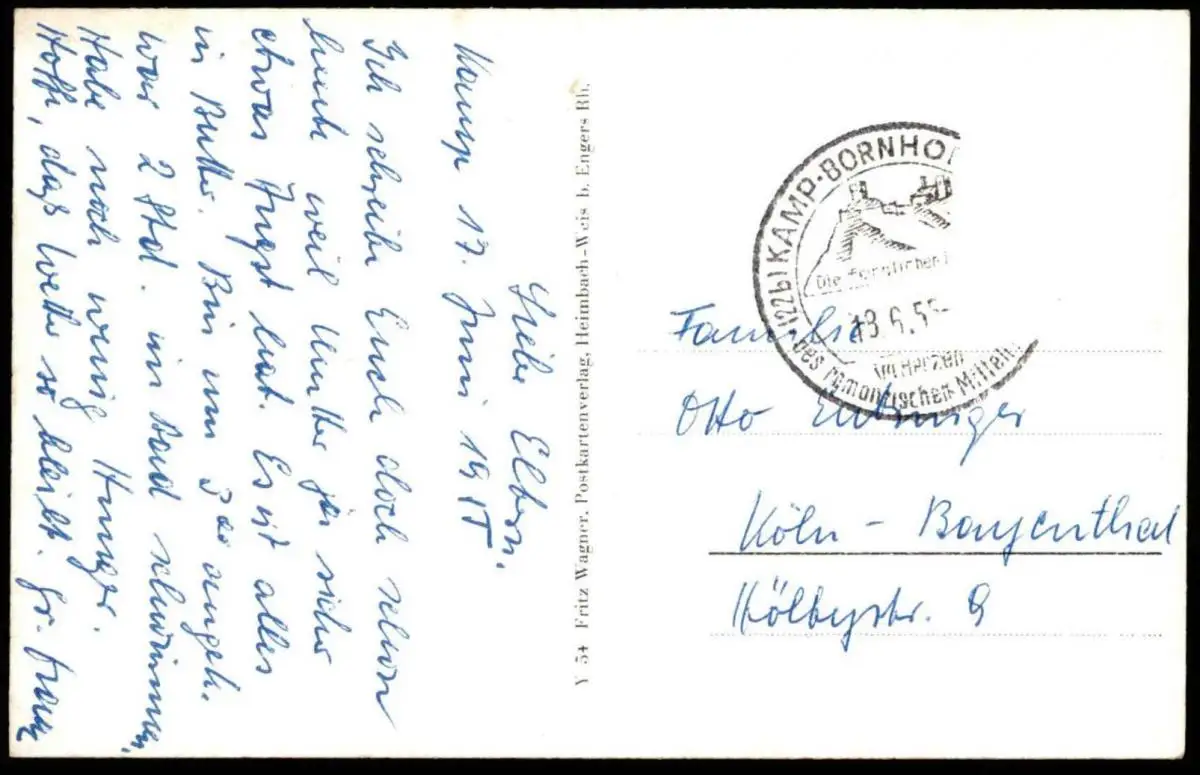 Kamp 17. Juni 1955
Liebe Eltern,
Ich schreibe Euch doch schon
heute weil Mutter für sicher
etwas Angst hat. Es ist alles
in Butter. Bin um 3 00 angek.
war 2 Std. im Bad schwimmen,
Habe noch wenig Hunger.
Hoffe, daß Wetter so bleibt. Gr.
Y 54 Fritz Wagner, Postkartenverlag, Heimbach-Weis b. Engers Rh.
(22b) KAMP-BORNHO
Die feindlichen
18.6.55
im Herzen
des romantischen Mittel
Familie
Otto
Köln - Bayenthal
9